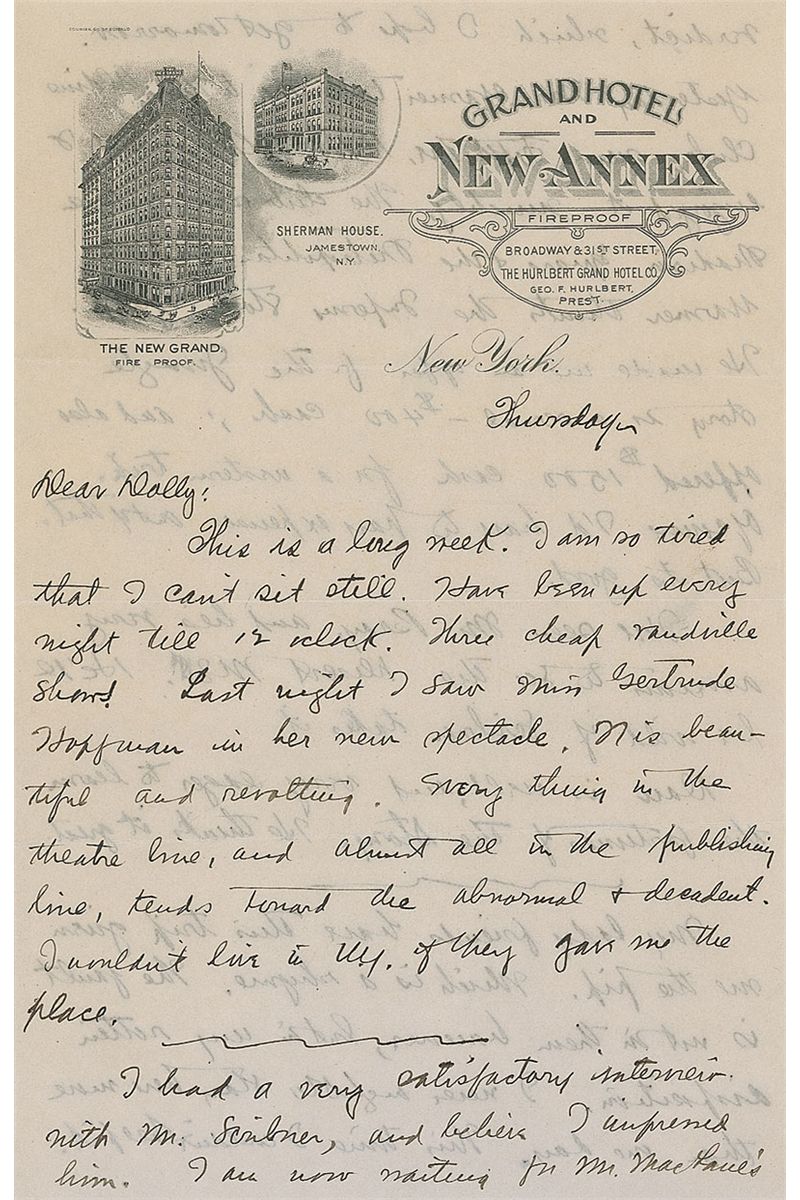 GRAND HOTEL
AND
NEW ANNEX
FIREPROOF
BROADWAY & 31ST STREET,
THE HURLBERT GRAND HOTEL CO.
GEO. F. HURLBERT,
PREST.
SHERMAN HOUSE.
JAMESTOWN,
N.Y.
THE NEW GRAND.
FIRE PROOF.
New York.
Thursday
Dear Dolly:
This is a long week. I am so tired
that I can't sit still. Have been up every
night till 12 oclock. Three cheap vaudville
shows! Last night I saw Miss Gertrude
Hoffman in her new spectacle. It is beau-
tiful and revolting. Every thing in the
theatre line, and almost all in the publishing
line, tends toward the abnormal & decadent.
I wouldn't live in N.Y. if they gave me the
place.
I had a very satisfactory interview
with Mr. Scribner, and believe I impressed
him. I am now waiting for Mr. MacLane's